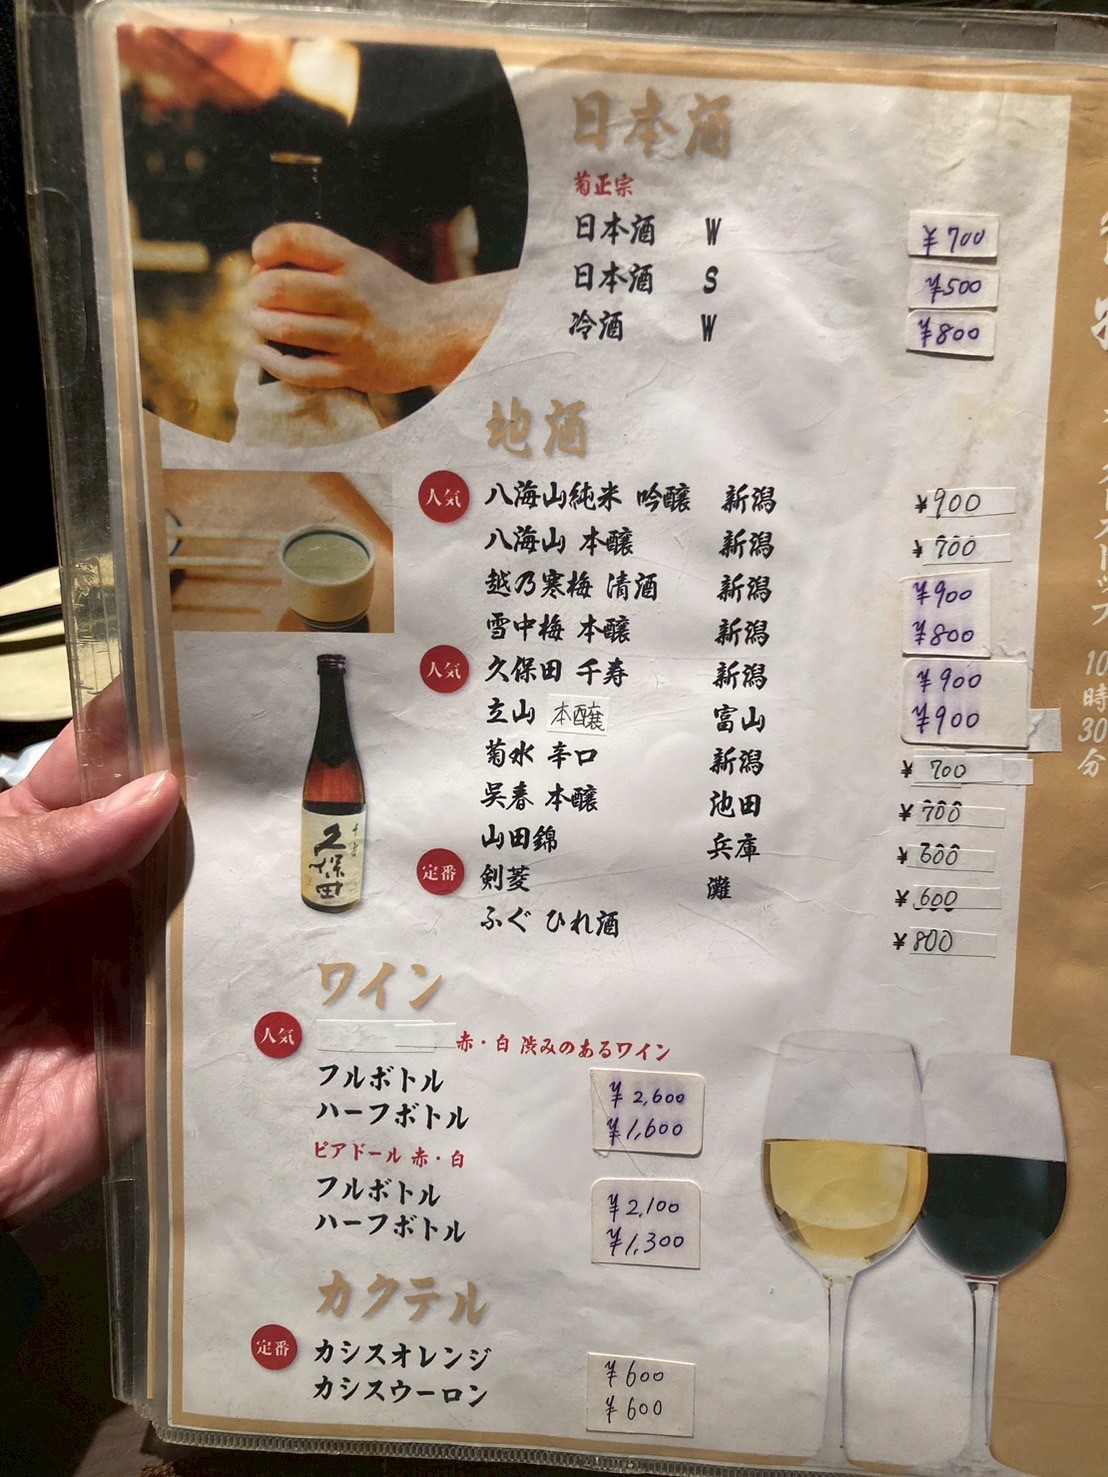 日本酒
菊正宗
日本酒 W ¥700
日本酒 S ¥500
冷酒 W ¥800
地酒
人気 八海山純米 吟醸 新潟 ¥900
八海山 本醸 新潟 ¥700
越乃寒梅 清酒 新潟 ¥900
雪中梅 本醸 新潟 ¥800
人気 久保田 千寿 新潟 ¥900
立山 本醸 富山 ¥900
菊水 辛口 新潟 ¥700
呉春 本醸 池田 ¥700
山田錦 兵庫 ¥600
定番 剣菱 灘 ¥600
ふぐ ひれ酒 ¥800
久保田
千寿
ワイン
人気 赤・白 渋みのあるワイン
フルボトル ¥2,600
ハーフボトル ¥1,600
ピアドール 赤・白
フルボトル ¥2,100
ハーフボトル ¥1,300
カクテル
定番 カシスオレンジ ¥600
カシスウーロン ¥600
10時30分